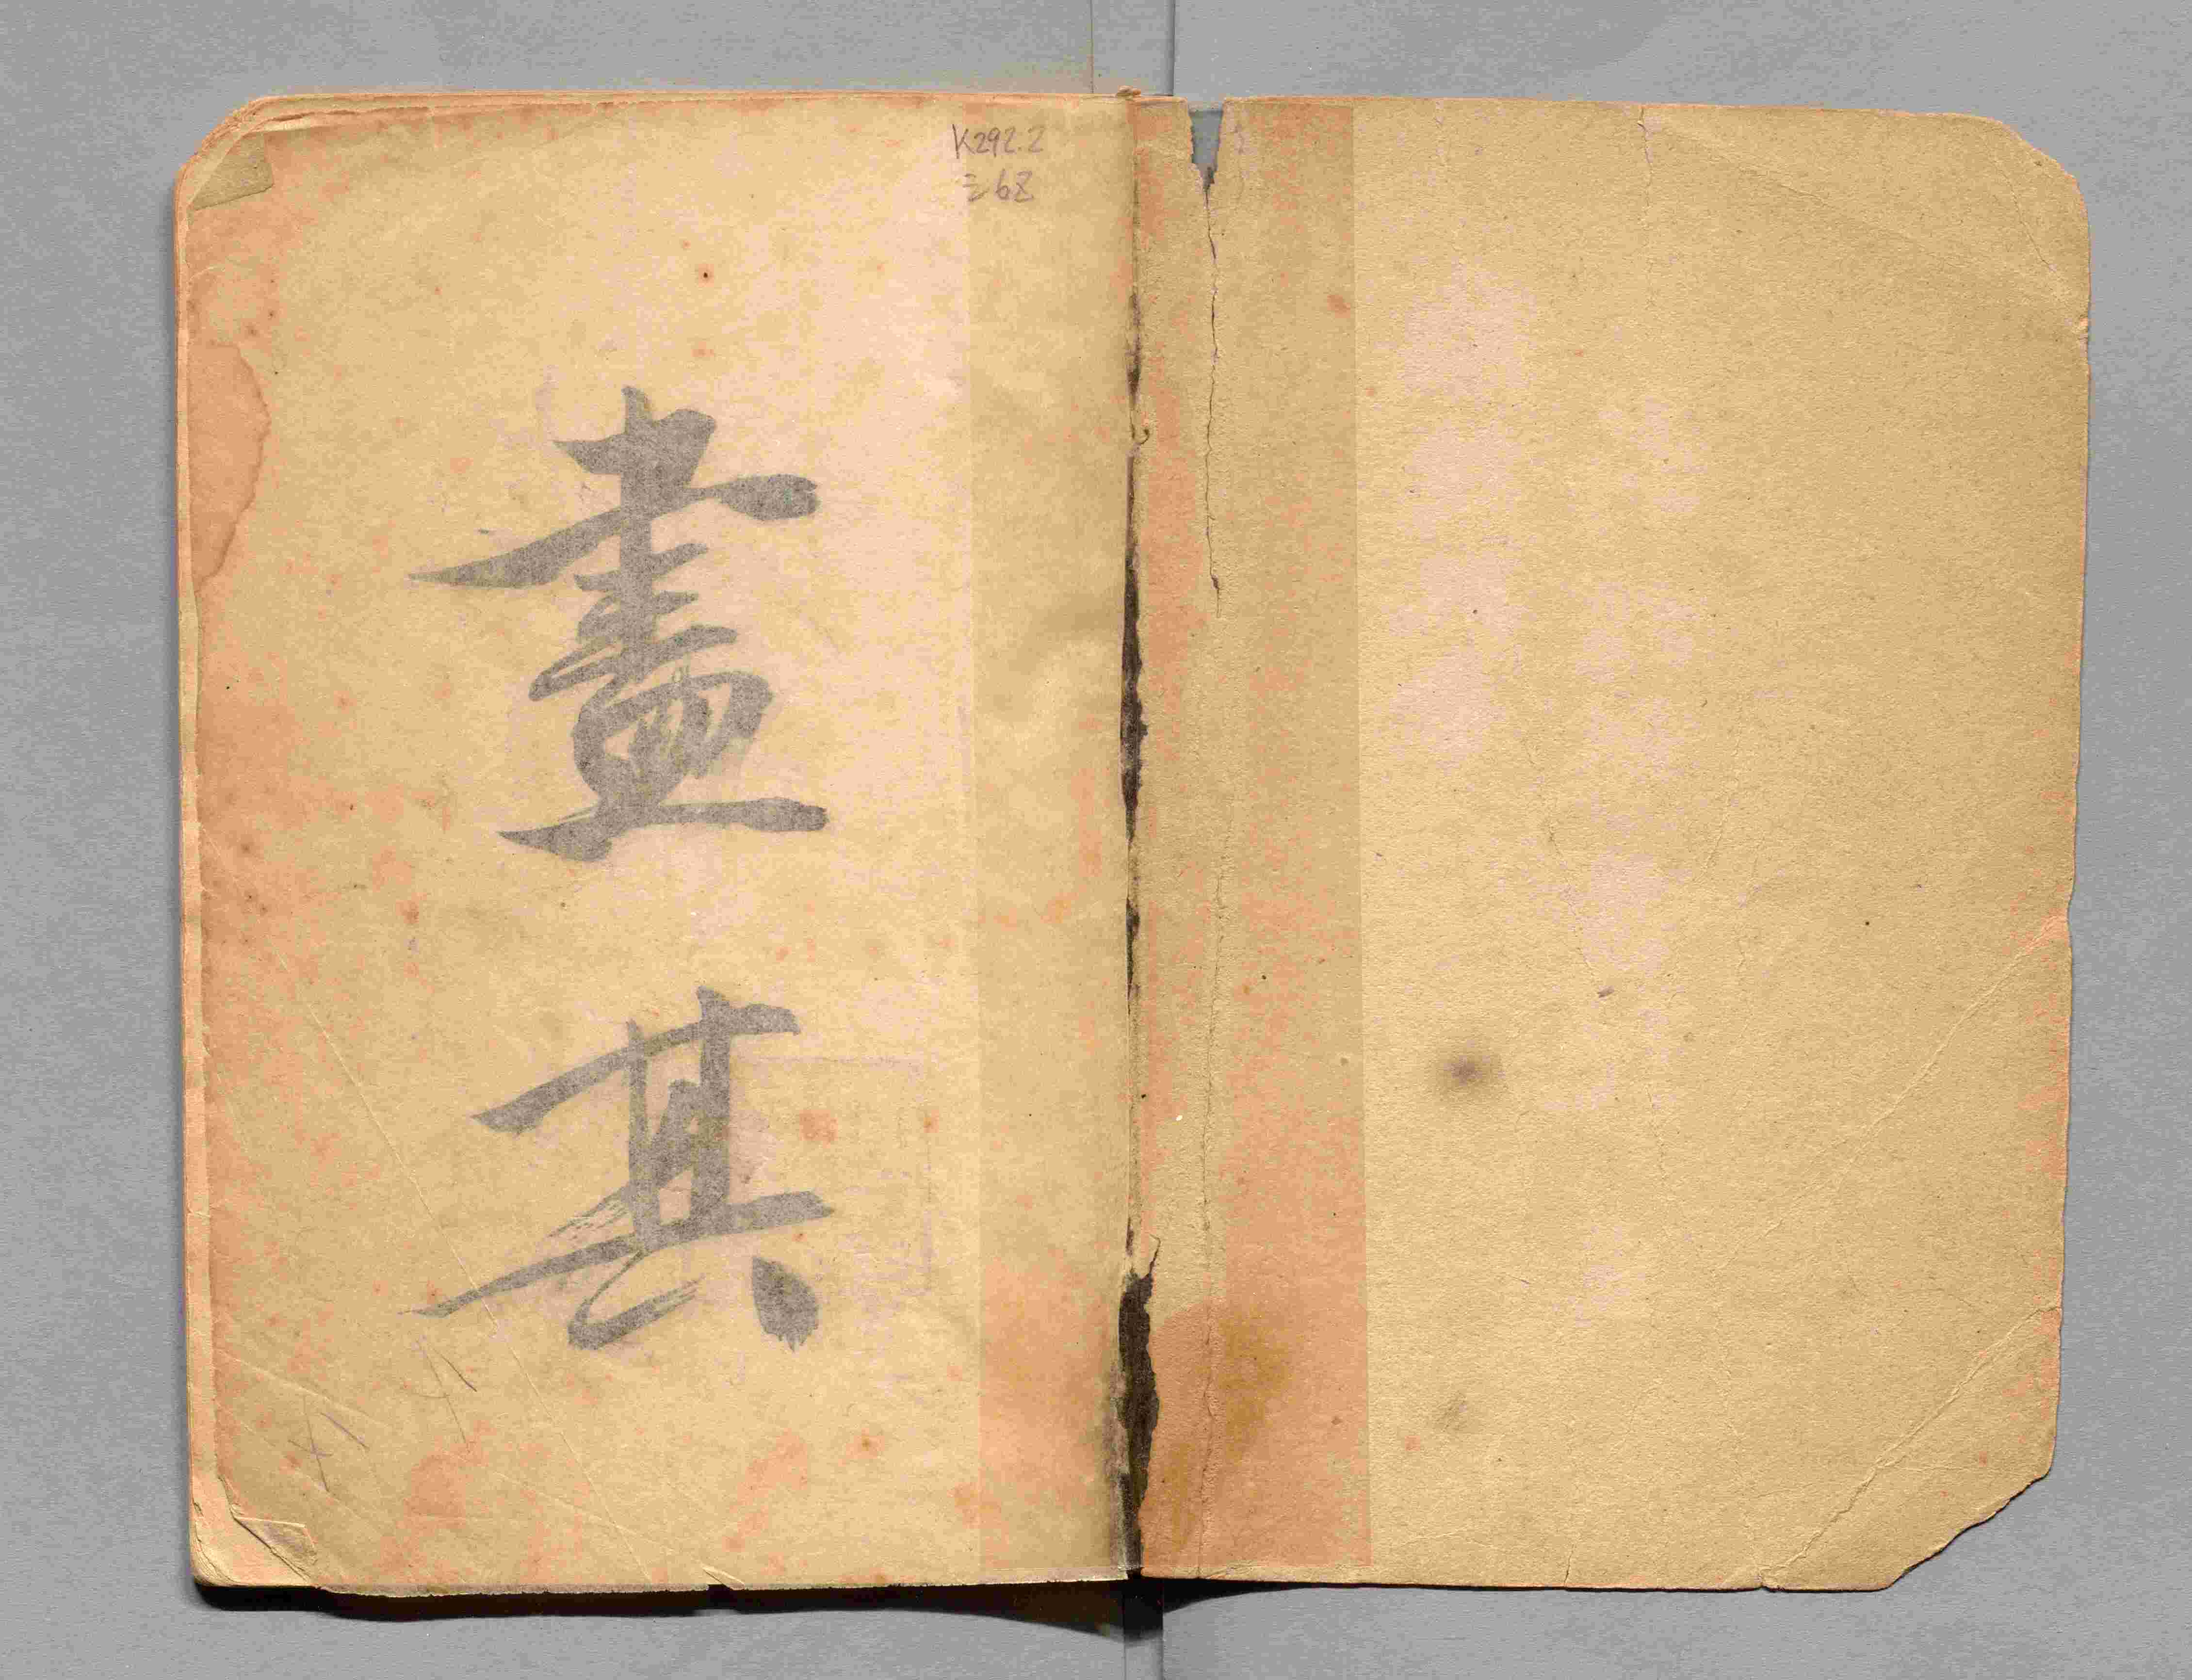 K292.2
ミ68
盡
其